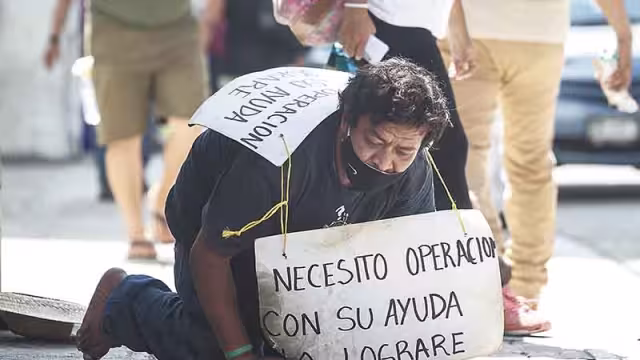 OPERACION
SU AYUDA
LOGRARE
NECESITO OPERACION
CON SU AYUDA
LO LOGRARE